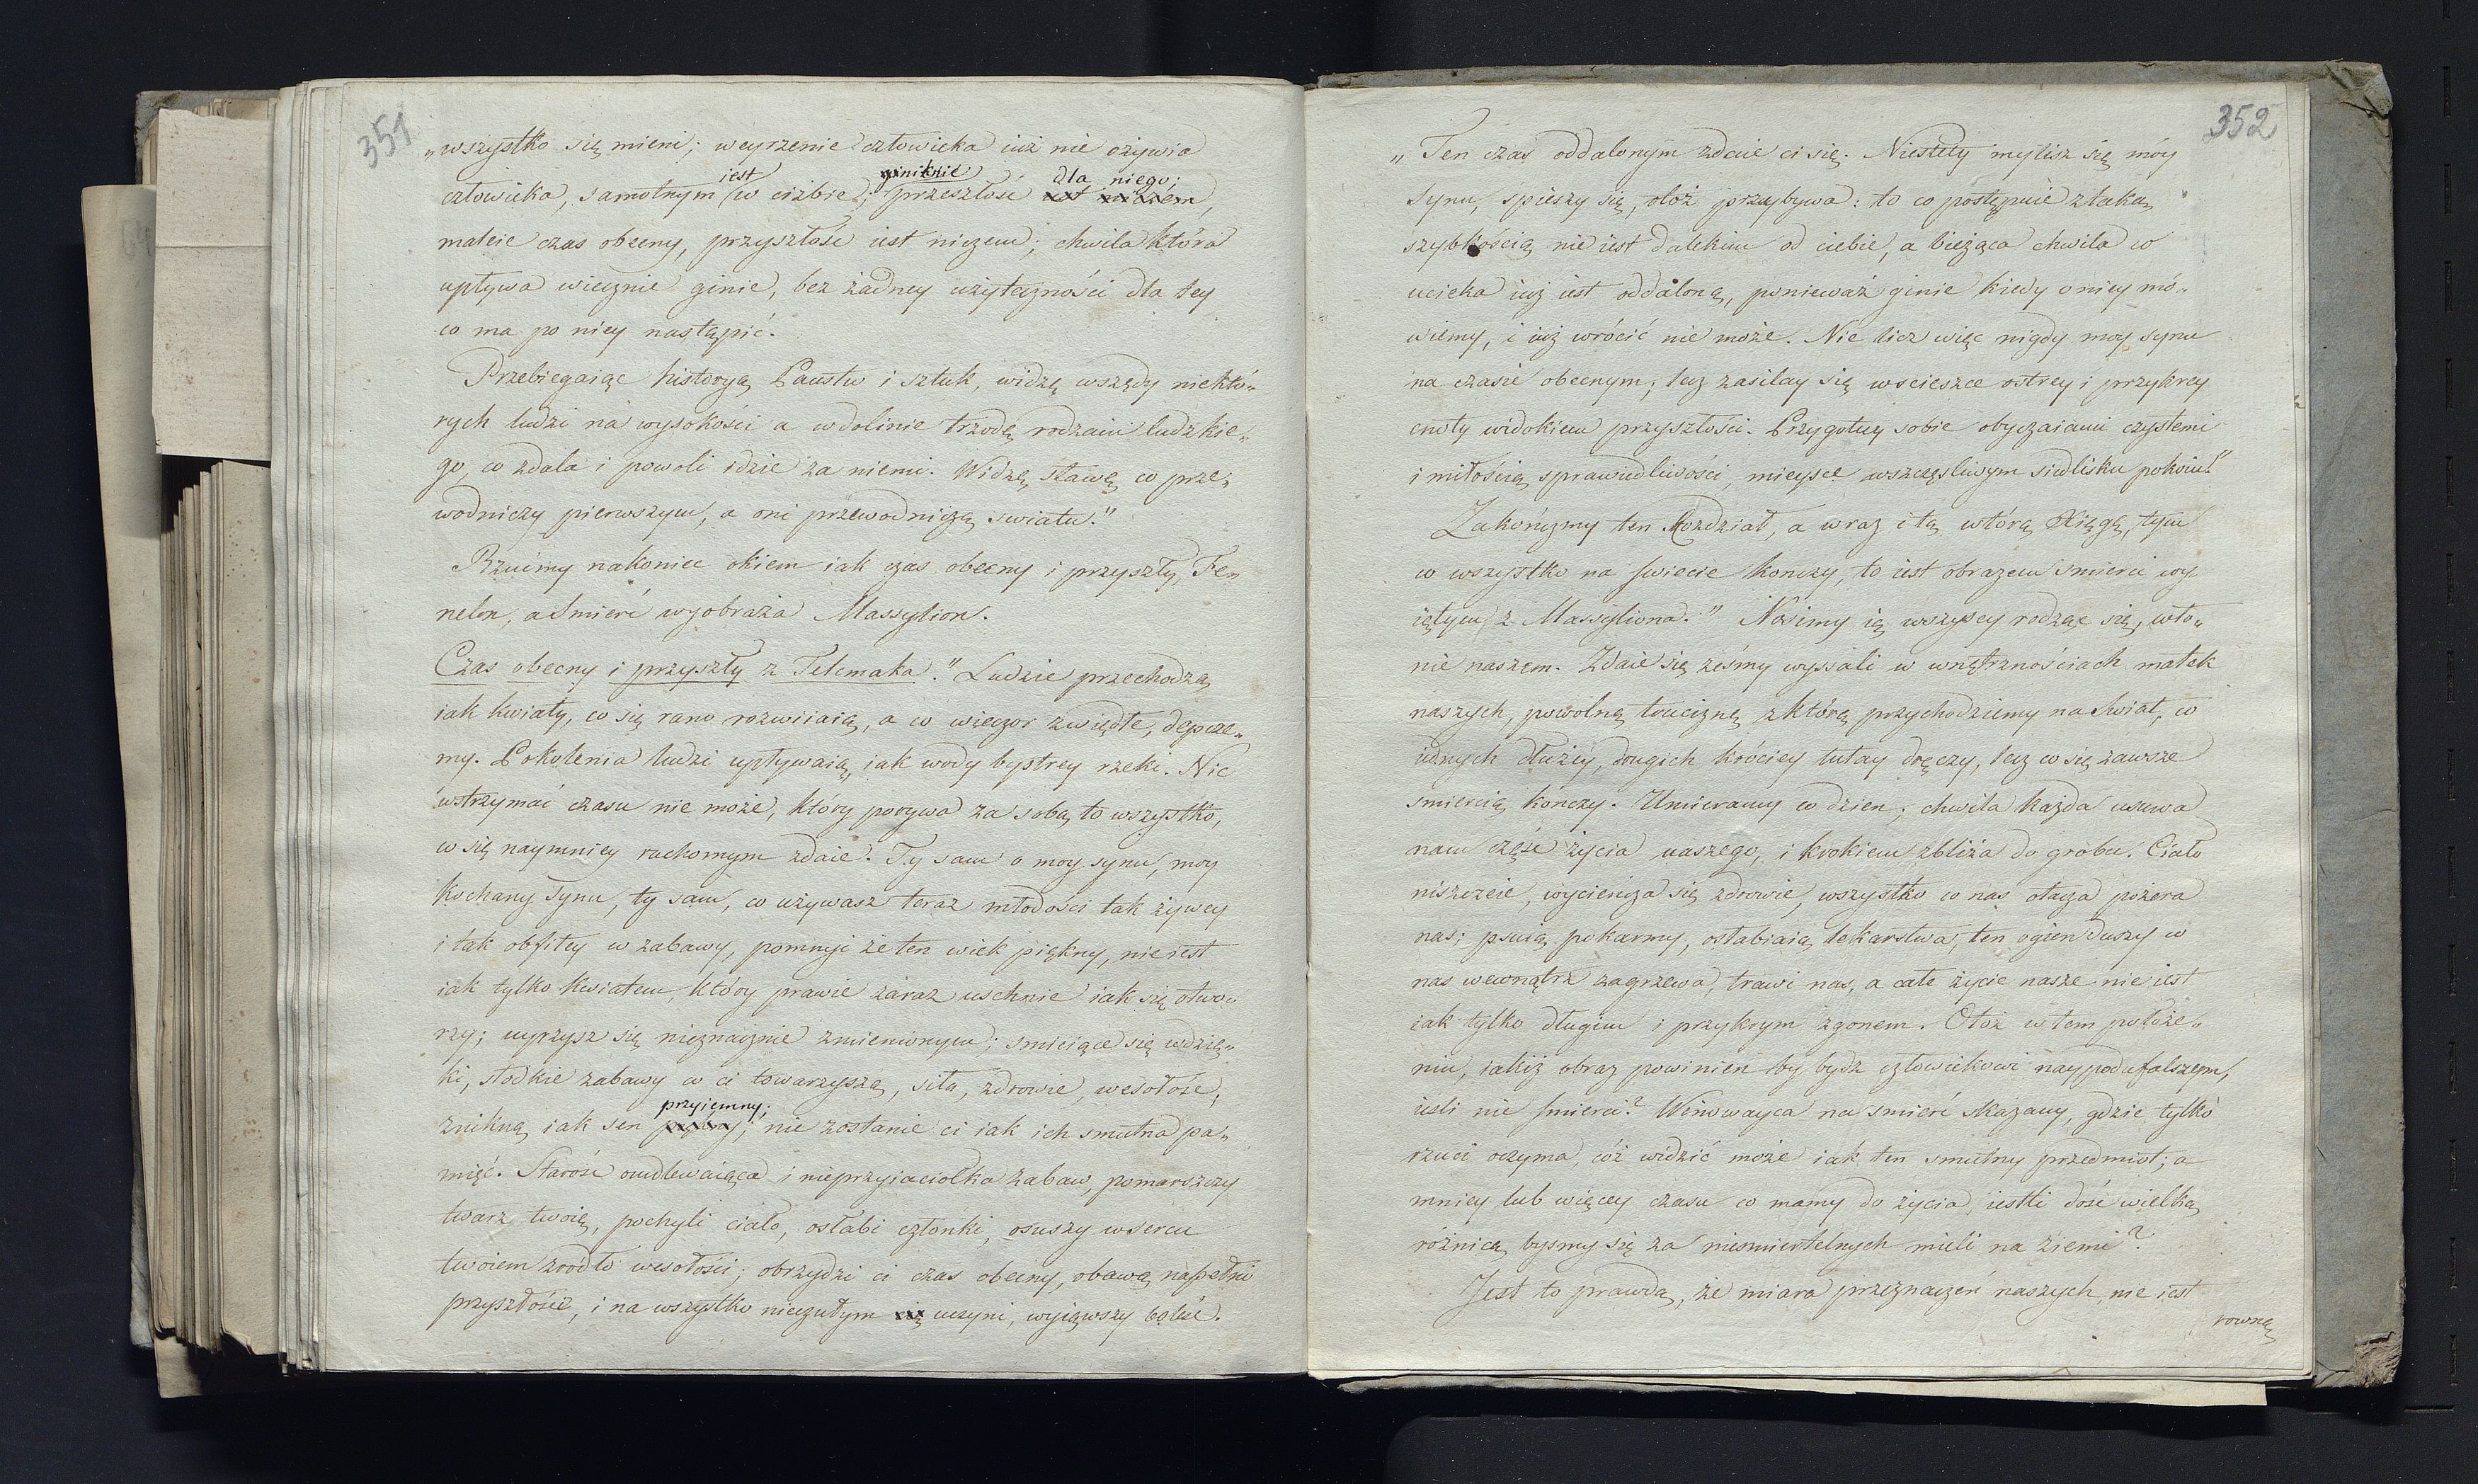 351
„wszystko się mieni; weyrzenie człowieka iuż nie ożywia
iest giniknie dla niego;
człowieka, samotnym w ciżbie; przeszłość iest niczém,
maleie czas obecny, przyszłość iest niczem; chwila która
upływa wiecznie ginie, bez żadney użyteczności dla tey
co ma po niey nastąpić.
Przebiegaiąc historyą Państw i sztuk, widzę wszędy niektó„
rych ludzi na wysokości a w dolinie trzodę rodzaiu ludzkie„
go, co zdala i powoli idzie za niemi. Widzę sławę co prze„
wodniczy pierwszym, a oni przewodniczą swiatu."
Rzućmy nakoniec okiem iak czas obecny i przyszły Fe„
nelon, a smierć wyobraża Massylion.
Czas obecny i przyszły z Telemaka." Ludzie przechodzą
iak kwiaty, co się rano rozwiiaią, a w wieczor zwiędłe, depcze„
my. Pokolenia ludzi upływaią iak wody bystrey rzeki. Nic
wstrzymać czasu nie może, który porywa za sobą to wszystko,
co się naymniey ruchomym zdaie. Ty sam o moy synu, moy
kochany synu, ty sam, co używasz teraz młodości tak żywey
i tak obfitey w zabawy, pomniy że ten wiek piękny, nie iest
iak tylko kwiatem, który prawie zaraz uschnie iak się otwo„
rzy; uyrzysz się nieznacznie zmienionym; smieiące się wdzię„
ki, słodkie zabawy co ci towarzyszą, siła, zdrowie, wesołość,
przyiemny;
znikną iak sen piękny; nie zostanie ci iak ich smutna pa„
mięć. Starość omdlewaiąca i nieprzyiaciołka zabaw, pomarszczy
twarz twoię, pochyli ciało, osłabi członki, osuszy w sercu
twoiem zrodło wesołości; obrzydzi ci czas obecny, obawą napełni
przyszłość, i na wszystko nieczułym cię uczyni, wyiąwszy boleść.
352
„Ten czas oddalonym zdaie ci się. Niestety mylisz się móy
synu, spieszy się, otóż przybywa: to co postępuie z taką
szybkością nie iest dalekim od ciebie, a bieżąca chwila co
ucieka iuż iest oddaloną, ponieważ ginie kiedy o niey mó„
wiemy, i iuż wrócić nie może. Nie licz więc nigdy moy synu
na czasie obecnym; lecz zasilay się w scieszce ostrey i przykrey
cnoty widokiem przyszłości. Przygotuy sobie obyczaiami czystemi
i miłością sprawiedliwości, mieysce w szczęsliwym siedlisku pokoiu!"
Zakończmy ten Rozdział, a wraz i tę wtórą Xięgę, tym
co wszystko na swiecie konczy, to iest obrazem smierci wy„
iętym z Massyliona." Nosimy ią wszyscy rodząc się, w ło„
nie naszem. Zdaie się żeśmy wyssali w wnętrznościach matek
naszych, powolną truciznę z którą przychodziemy na świat, co
iednych dłużéy, drugich króciey tutay dręczy, lecz co się zawsze
smiercią kończy. Umieramy co dzien; chwila każda usuwa
nam część życia naszego, i krokiem zbliża do grobu. Ciało
niszczeie, wycieńcza się zdrowie, wszystko co nas otacza pożera
nas; psuią pokarmy, osłabiaią lekarstwa, ten ogień duszy co
nas wewnątrz zagrzewa, trawi nas, a całe życie nasze nie iest
iak tylko długim i przykrym zgonem. Otóż w tem położe„
niu, iakiż obraz powinien by bydz człowiekowi naypodufalszym,
iesli nie smierci? Winowayca na smierć skazany, gdzie tylko
rzuci oczyma, cóż widzić może iak ten smutny przedmiot; a
mniey lub więcey czasu co mamy do życia, iestli dość wielką
różnicą, bysmy się za niesmiertelnych mieli na ziemi?
Jest to prawda, że miara przeznaczeń naszych nie iest
rowną